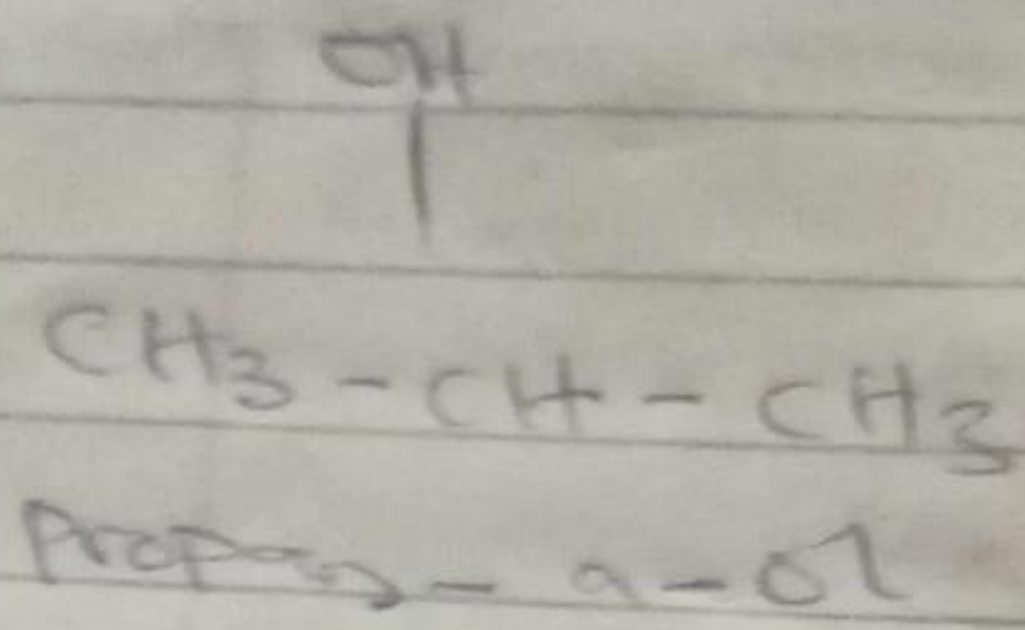 OH
|
CH3 - CH - CH3
Propan - 2 - ol